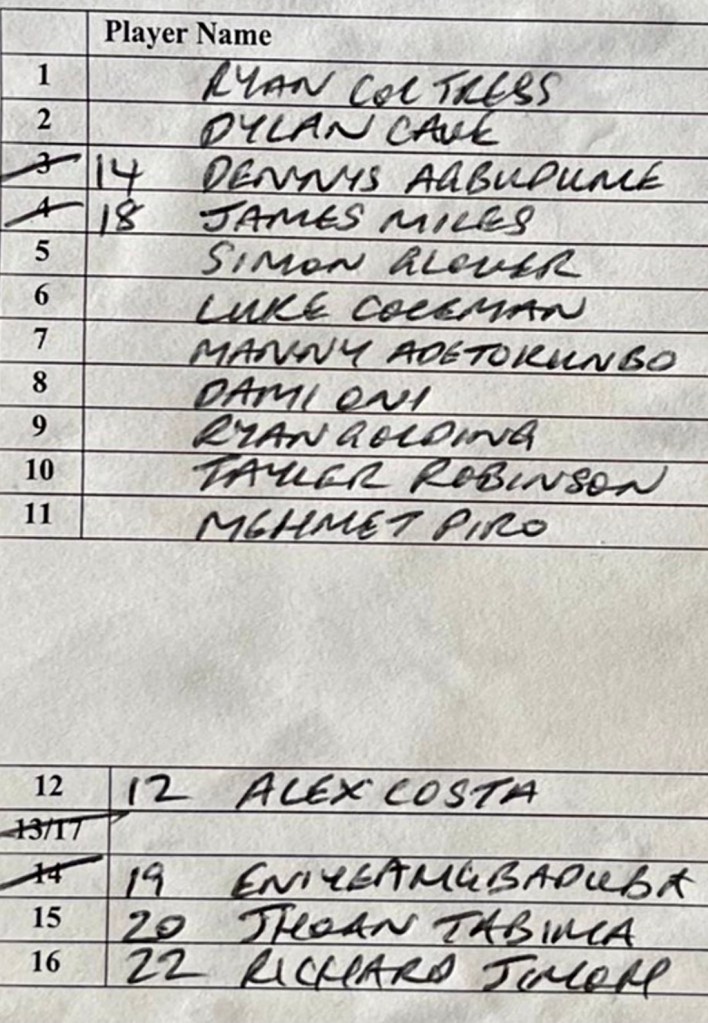 Player Name
1 RYAN COLTRESS
2 DYLAN CAVE
3 14 DENNYS AGBUDUME
4 18 JAMES MILES
5 SIMON GLOVER
6 LUKE COLEMAN
7 MANNY ADETOKUNBO
8 DAMI ONI
9 RYAN GOLDING
10 TAYLER ROBINSON
11 MEHMET PIRO
12 12 ALEX COSTA
13/17
14 19
15 20 JHOAN TABIMA
16 22 RICHARD